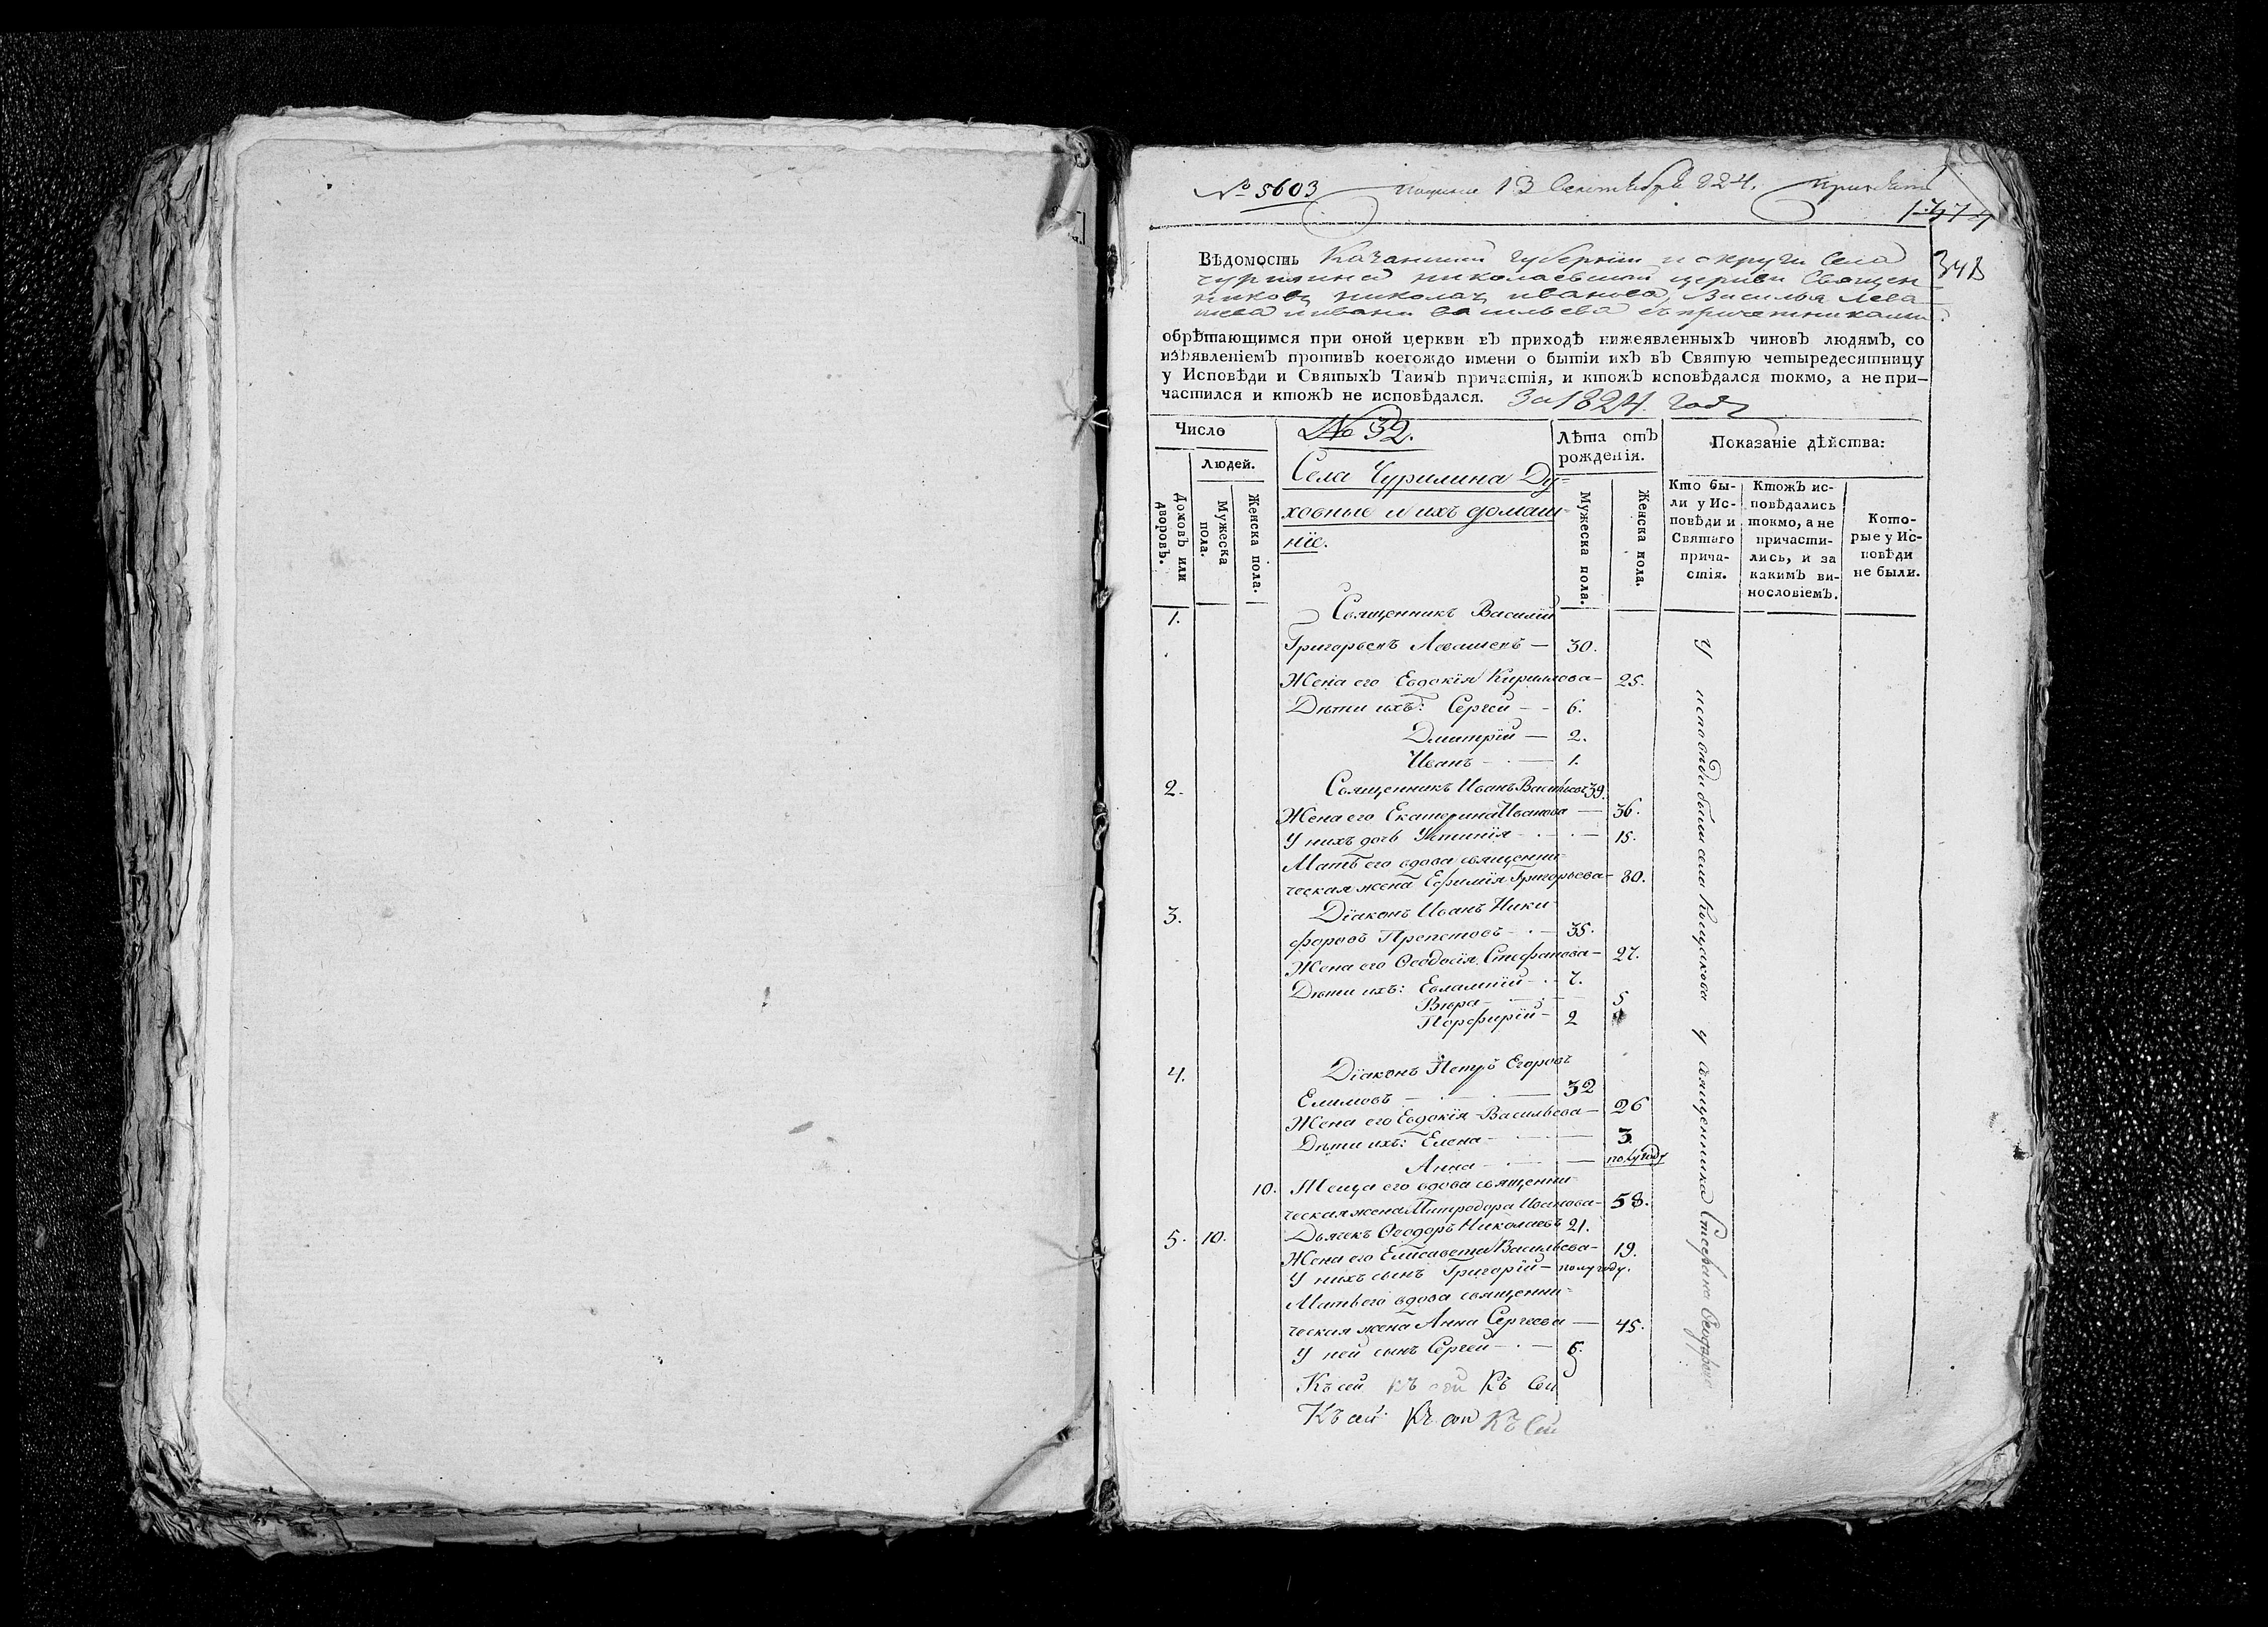 № 5603 13 Сентября 824.
348
Вѣдомость Казанской губерніи и округи Села
Чурилина николаевской церкви Священ-
никовъ николая иванова, Василья Лева-
шева и ивана Васильева съ причетниками
обрѣтающимся при оной церкви въ приходѣ нижеявленныхъ чиновъ людямъ, со
изъявленіемъ противъ коегождо имени о бытіи ихъ въ Святую четыредесятницу
у Исповѣди и Святыхъ Таинъ причастія, и ктожъ исповѣдался токмо, а не при-
частился и ктожъ не исповѣдался. За 1824. годъ
Число
Людей.
Домовъ или дворовъ.
Мужеска пола.
Женска пола.
№ 32.
Села Чурилина Ду=
ховные и ихъ домаш-
ніе.
Лѣта отъ рожденія.
Мужеска пола.
Женска пола.
Показаніе дѣйства:
Кто бы-
ли у Ис-
повѣди и
Святаго
прича-
стія.
Ктожъ ис-
повѣдались
токмо, а не
причасти-
лись, и за
какимъ ви-
нословіемъ.
Кото-
рые у Ис-
повѣди
не были.
1. Священникъ Василій
Григорьевъ Левашевъ — 30.
Жена его Евдокія Кириллова — 25.
Дѣти ихъ: Сергей - - 6.
Дмитрій — 2.
Иванъ - — 1.
2. Священникъ Иванъ Васильевъ 39.
Жена его Екатерина Иванова — 36.
У нихъ дочь Устинія - · - — 15.
Мать его вдова священни-
ческая жена Ефимія Григорьева — 80.
3. Діаконъ Иванъ Ники-
форовъ — 35.
Жена его Ѳеодосія Стефанова — 27.
Дѣти ихъ: Евлампій - · - 7.
Вѣра - 5
Порфирій - 2
4. Діаконъ Петръ Егоровъ
32
Жена его Евдокія Васильева — 26
Дѣти ихъ: Елена - — 3.
Анна - — полугоду
10. Теща его вдова священни-
ческая жена Митродора Иванова — 58.
5. 10. Дьячекъ Ѳеодоръ Николаевъ 21.
Жена его Елисавета Васильева — 19.
У нихъ сынъ Григорій — полугоду.
Мать его вдова священни=
ческая жена Анна Сергеева — 45.
У ней сынъ Сергей - · — 6.
Къ сей къ сей Къ Сей
Къ сей Къ сей Къ Сей
У исповѣди были села у священника Стефана Ѳеодорова